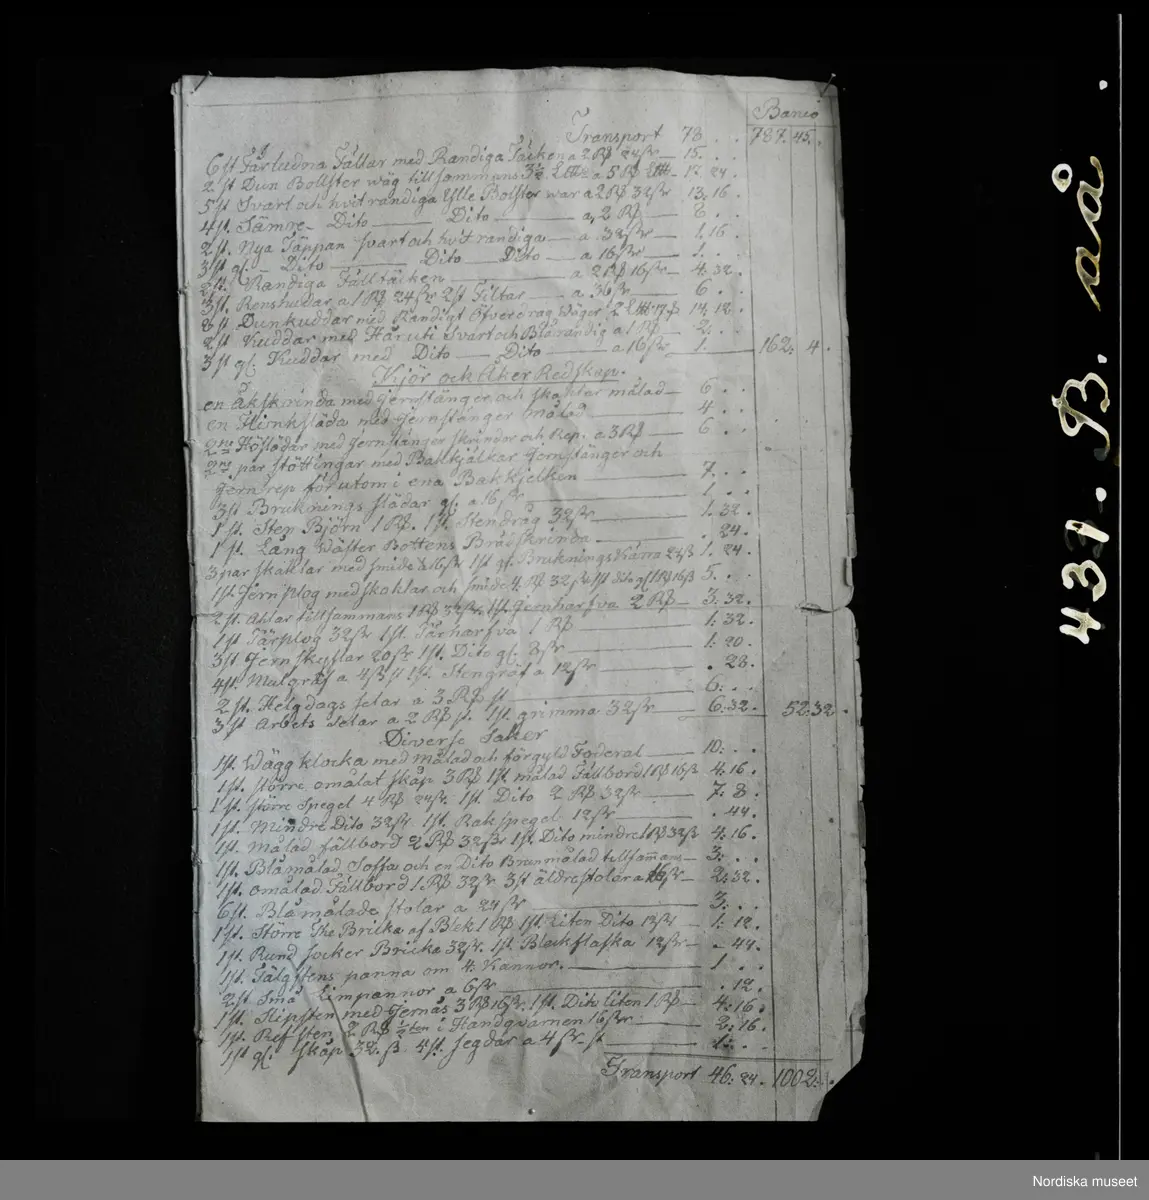 Banco
Transport 78 . . 787. 45.
6 st Fårludna Fällar med Randiga Täcken a 2 R$ 24 sk — 15. . .
2 st Dun Bollster wäg tillsammans 3½ a 5 R$ — 17. 24.
5 st Svart och hvit randiga Ylle Bolster war a 2 R$ 32 sk 13. 16.
4 st. Sämre — Dito — Dito — a, 2 R$ — 8 . .
2 st. Nya Täppan svart och hvit randiga — a 32 sk — 1. 16.
3 st gl. — Dito — Dito — Dito — a 16 sk — 1. . .
2 st. Randiga Fälltäcken — a 2 R$ 16 sk — 4: 32.
3 st. Renshudar a 1 R$ 24 sk 2 st Filtar — a 36 sk — 6 . .
8 st Dunkuddar med Randigt Öfverdrag Wäger 14. 12.
2 st Kuddar med Håruti Svart och Blårandig a 1 R$ — 2. . .
3 st gl. Kuddar med Dito — Dito — a 16 sk — 1. — 162: 4.
Kjör och Åker Redskap.
en Åkskrinda med Jernstänger och skaklar målad — 6 . .
en släda med Jernstänger målad — 4 . .
2ne Höslädar med Jernstänger skrindor och Rep. a 3 R$ — 6 . .
2ne par Stöttingar med Bakkjälkar Jernstänger och
Jern rep förutom i ena Bakkjelken — 7. . .
3 st Bruknings slädar gl. a 16 sk — 1. . .
1 st. Sten Björn 1 R$. 1 st. Stendrög 32 sk — 1. 32.
1 st. Lång Wäster Bottens Brädskrinda — . 24.
3 par skaklar med smide a 16 sk 1 st gl. Bruknings Kärra 24 sk 1. 24.
1 st. Jern plog med skaklar och smide 4 R$ 32 sk 1 st dito gl 1 R$ 16 sk 5. . .
2 st. tillsammans 1 R$ 32 sk. 1 st. Jernharfva 2 R$ — 3: 32.
1 st Tärplog 32 sk 1 st. Tärharfva 1 R$ — 1: 32.
3 st Jern skyflar 20 sk 1 st. Dito gl. 8 sk — 1: 20
4 st. Mulgräf a 4 sk 1 st. Stengräf a 12 sk — . 28.
2 st. Helgdags selar a 3 R$ st — 6: . .
3 st Arbets selar a 2 R$ st. 1 st. grimma 32 sk — 6: 32. 52: 32.
Diverse Saker
1 st. Wägg klocka med målad och förgyld Foderal — 10: . .
1 st. större omålat skåp 3 R$ 1 st. målad Fällbord 1 R$ 16 sk 4: 16.
1 st större Spegel 4 R$ 24 sk. 1 st. Dito 2 R$ 32 sk — 7: 8.
1 st. Mindre Dito 32 sk. 1 st. Rakspegel 12 sk — . 44.
1 st. Målad fällbord 2 R$ 32 sk. 1 st. Dito mindre 1 R$ 32 sk 4: 16.
1 st. Blåmålad Soffa och en Dito Brunmålad tillsammans — 3: . .
1 st. omålad Fällbord 1 R$ 32 sk 3 st äldre stolar a 16 sk — 2: 32.
6 st. Blåmålade stolar a 24 sk — 3: . .
1 st. Större The Bricka af Blek 1 R$ 1 st. Liten Dito 12 sk 1: 12.
1 st. Rund socker Bricka 32 sk. 1 st. Bleckflaska 12 sk — . 44.
1 st. Tälgstens panna om 4. Kannor. — 1. . .
2 st Små Limpannor a 6 sk — . 12.
1 st. Slipsten med Jernås 3 R$ 16 sk. 1 st. Dito liten 1 R$ — 4: 16.
1 st. sten 2 R$ ½ten i Handqvarnen 16 sk — 2: 16.
1 st gl. skåp 32. sk. 4 st. segdar a 4 sk. st — 1: . .
Transport 46: 24. 1002: .
431. B. aå
Nordiska museet